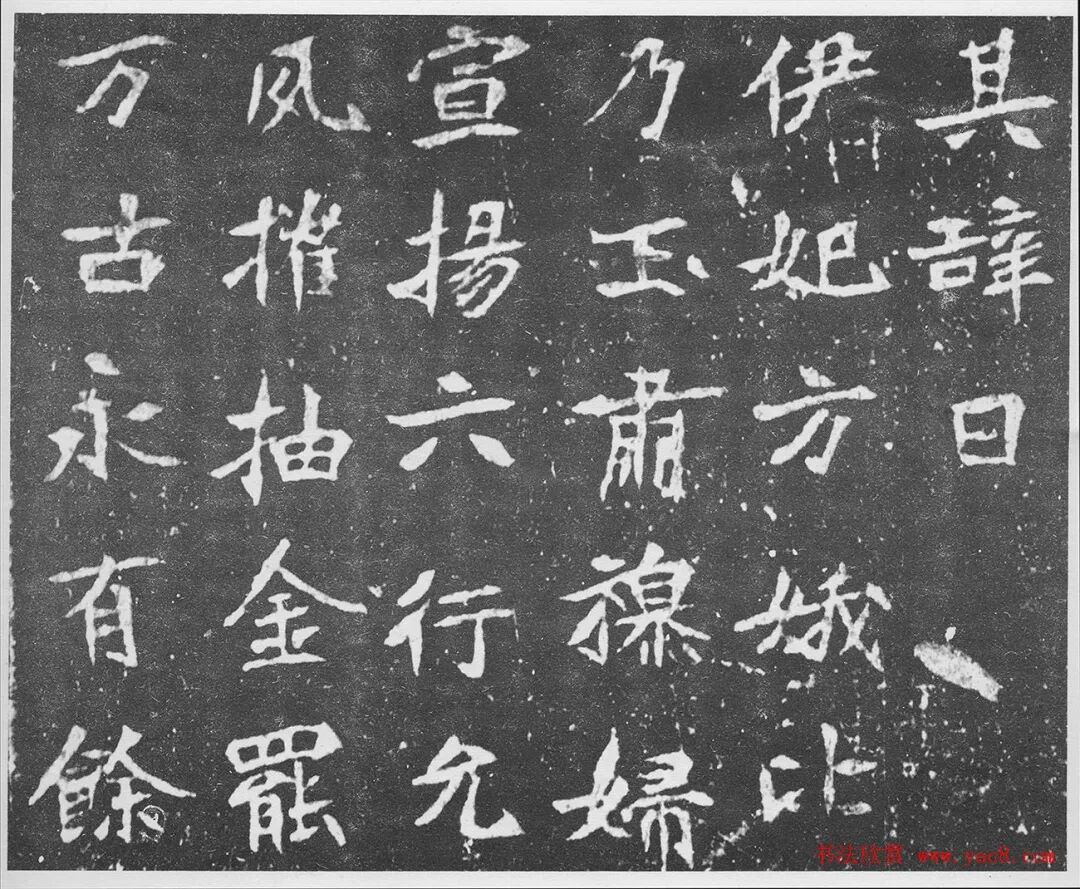 其辞曰
伊妃方娥比
乃玉肅穆婦
宣揚六行允
夙摧抽金罷
万古永有餘
书法欣赏 www.yac8.com